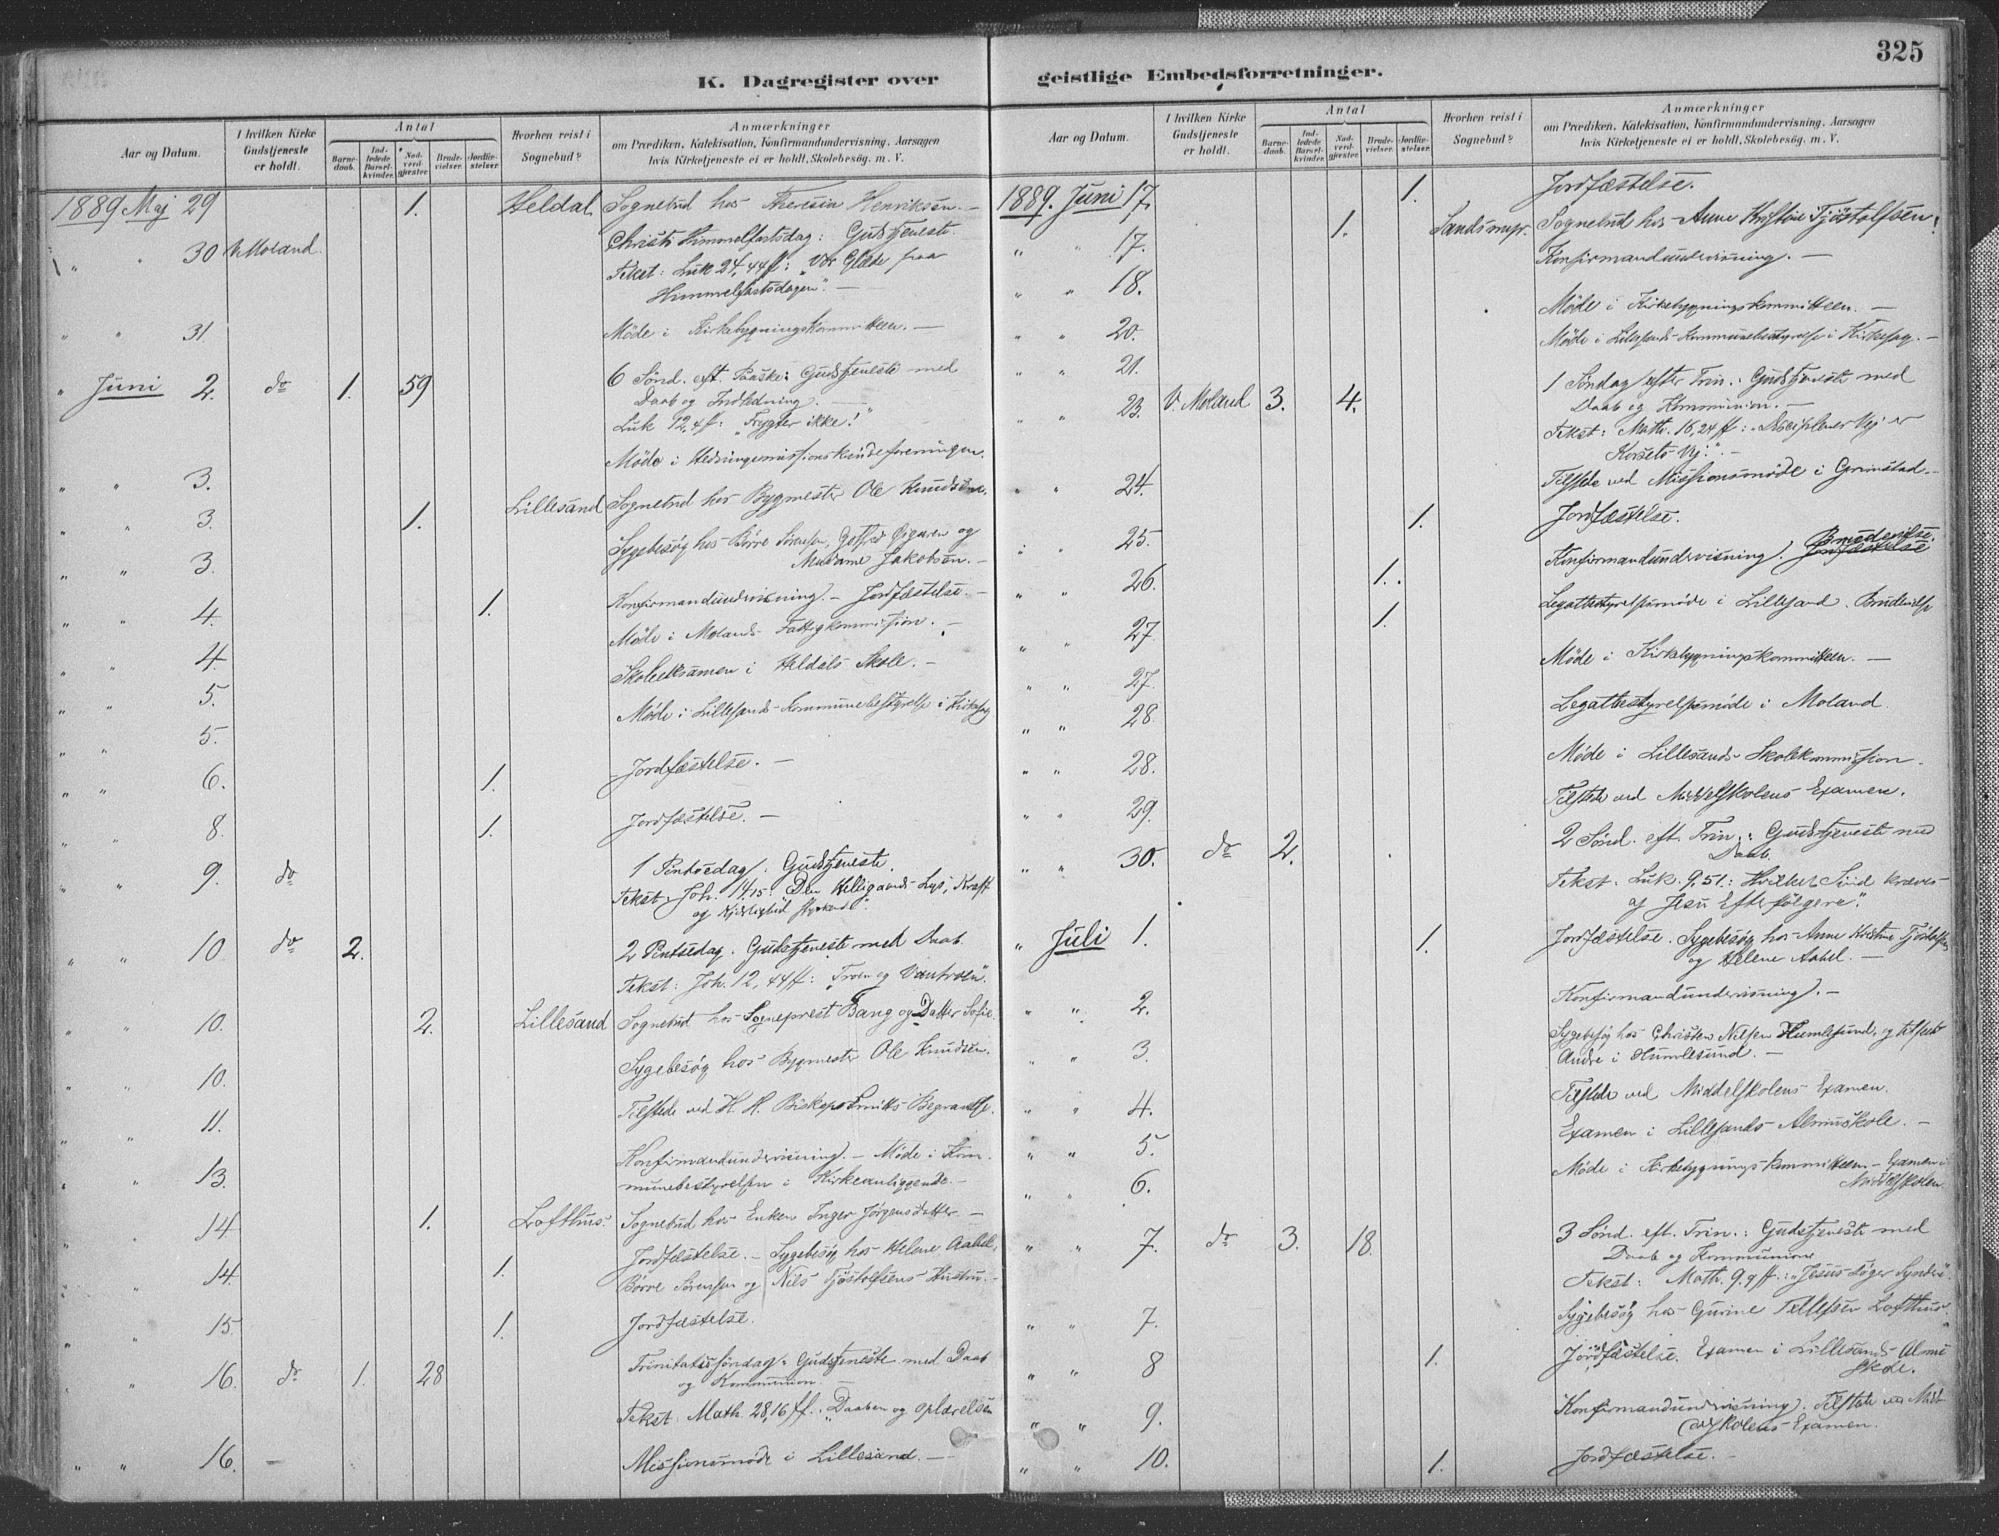 325
K. Dagregister over
Aar og Datum.
I hvilken Kirke Gudstjeneste er holdt.
Antal
Barne-daab.
Ind-ledede Barsel-kvinder.
Nad-verd-gjæster.
Brude-vielser.
Jordfæ-stelser.
Hvorhen reist i Sognebud?
Anmærkninger
om Prædiken, Katekisation, Konfirmandundervisning, Aarsagen
hvis Kirketjeneste ei er holdt, Skolebesøg. m. V.
1889 Maj 29 1. Heldal Sognebud hos Theresia Henriksen. –
" " 30 V. Moland. Christi Himmelfartsdag: Gudstjeneste.
Tekst: Luk 24,44ff: "Vor Glæde paa
Himmelfartsdagen". –
" " 31 Møde i Kirkebygningskommitteen. –
" Juni 2. do 1. 59 6 Sønd. eft. Paaske: Gudstjeneste med
Daab og Indledning. –
Luk 12,4ff: "Frygter ikke!"
" " 3. Møde i Hedningemissionskvindeforeningen.
" " 3. 1. Lillesand Sognebud hos Bygmester Ole Knudsen.
" " 3. Sygebesøg hos Børre Sørensen, og
Madame Jakobsen. –
" " 4. 1. Konfirmandundervisning. – Jordfæstelse. –
" " 4 Møde i Molands Fattigkommission. –
" " 5. Skoleeksamen i Heldals Skole. –
" " 5. Møde i Lillesands Kommunebestyrelse i Kirkesag
" " 6. 1. Jordfæstelse. –
" " 8. 1. Jordfæstelse. –
" " 9. do 1 Pintsedag. Gudstjeneste.
Tekst. Joh. 14,15: Den Helligaands Lys, Kraft
og Kjærlighed
" " 10 do 2. 2 Pintsedag. Gudstjeneste med Daab.
Tekst: Joh. 12,44ff: "Troen og Vantroen".
" " 10. 2. Lillesand Sognebud hos Sogneprest Bang og Datter Sofie.
" " 10. Sygebesøg hos Bygmester Ole Knudsen.
" " 11. Tilstede ved H. H. Biskop Smitts Begravelse.
" " 13. Konfirmandundervisning. – Møde i Kom-
munebestyrelsen i Kirkeanliggende. –
" " 14 1. Lofthus. Sognebud hos Enken Inger Jørgensdatter –
" " 14. 1. Jordfæstelse. – Sygebesøg hos Helene Aabel,
Børre Sørensen og Nils Tjøstolfsens Hustru. –
" " 15 1. Jordfæstelse.
" " 16. do 1. 28 Trinitatissøndag: Gudstjeneste med Daab
og Kommunion. –
Tekst: Math. 28,16ff. "Daaben og Oplærelsen
" " 16. – Missionsmøde i Lillesand. –
geistlige Embedsforretninger.
Aar og Datum.
I hvilken Kirke Gudstjeneste er holdt.
Antal
Barne-daab.
Ind-ledede Barsel-kvinder.
Nad-verd-gjæster.
Brude-vielser.
Jordfæ-stelser.
Hvorhen reist i Sognebud?
Anmærkninger
om Prædiken, Katekisation, Konfirmandundervisning. Aarsagen
hvis Kirketjeneste ei er holdt, Skolebesøg. m. V.
1889. Juni 17. 1. Jordfæstelse.
" " 17. 1. Sandsmyr. Sognebud hos Anne Kristine Tjøstolfsen.
" " 18. Konfirmandundervisning. –
" " 20. Møde i Kirkebygningskommitteen. –
" " 21. Møde i Lillesands Kommunebestyrelse i Kirkesag. –
" " 23. V. Moland 3. 4. 1 Søndag efter Trin.: Gudstjeneste med
Daab og Kommunion. –
Tekst: Math. 16,24ff: "Disciplenes Vej er
Korsets Vej". –
" " 24. Tilstede ved Missionsmøde i Grimstad. –
" " 25. 1. Jordfæstelse.
" " 26. 1. Konfirmandundervisning. Jordfæstelse Brudevielse.
" " 27 1. Legatbestyrelsesmøde i Lillesand. Brudevielse
" " 27. Møde i Kirkebygningskommitteen. –
" " 28 Legatbestyrelsesmøde i Moland.
" " 28. Møde i Lillesands Skolekommission.
" " 29. Tilstede ved Middelskolens Examen.
" " 30. do 2. 2 Sønd. eft. Trin.: Gudstjeneste med
Daab.
Tekst. Luk. 9,51: Hvilket Sind kræves
af Jesu Efterfølgere".
" Juli 1. 1. Jordfæstelse. Sygebesøg hos Anne Kristine Tjøstolfsen
og Helene Aabel. –
" " 2. Konfirmandundervisning. –
" " 3. Sygebesøg hos Christen Nilsen Humlesund, og
Andre i Humlesund. –
" " 4. Tilstede ved Middelskolens Examen.
" " 5. Examen i Lillesands Almueskole. –
" " 6. Møde i Kirkebygningskommitteen – Examen i
Middelskolen.
" " 7. do 3. 18. 3 Sønd. eft. Trin.: Gudstjeneste med
Daab og Kommunion
Tekst: Math. 9,9ff: "Jesus søger Syndere".
" " 7. Sygebesøg hos Gurine Tellefsen Lofthus.
" " 8 1. Jordfæstelse. Examen i Lillesands Almue
skole.
" " 9. Konfirmandundervisning. Tilstede ved Mid-
delskolens Examen.
" " 10. 1. Jordfæstelse. –